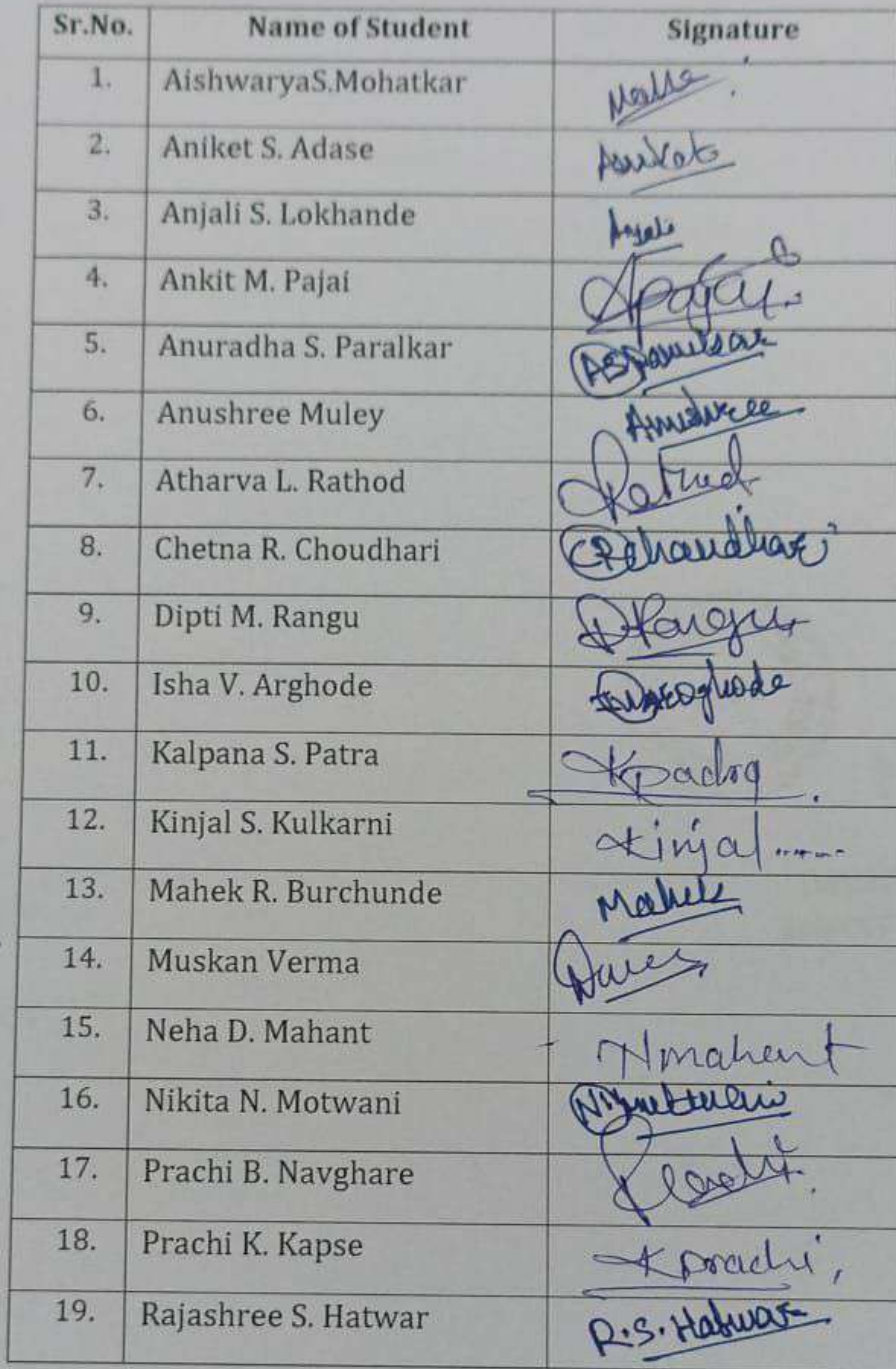 Sr.No. Name of Student Signature
1. AishwaryaS.Mohatkar
2. Aniket S. Adase Aniket
3. Anjali S. Lokhande Anjali
4. Ankit M. Pajai Apajai
5. Anuradha S. Paralkar
6. Anushree Muley Anushree
7. Atharva L. Rathod Rathod
8. Chetna R. Choudhari CRChaudhari
9. Dipti M. Rangu DRangu
10. Isha V. Arghode
11. Kalpana S. Patra
12. Kinjal S. Kulkarni Kinjal
13. Mahek R. Burchunde Mahek
14. Muskan Verma
15. Neha D. Mahant Nmahant
16. Nikita N. Motwani
17. Prachi B. Navghare Prachi
18. Prachi K. Kapse Kprachi,
19. Rajashree S. Hatwar R.S.Hatwar